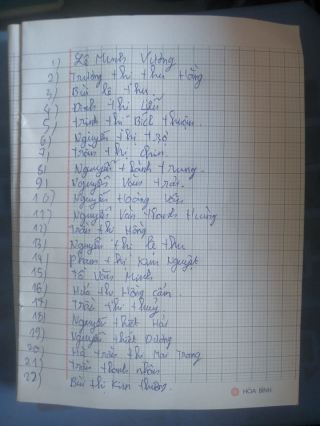 1) Lê Minh Vương
2) Trương thị thu Hằng
3) Bùi lê thu.
4) Đinh thị
5) Trịnh thị Bích thuận.
6) Nguyễn thị
7) Trần thị
8) Nguyễn thành trung.
9) Nguyễn Văn
10) Nguyễn Hoàng
11) Nguyễn Văn thanh Hùng
12) Trần thị Hồng
13) Nguyễn thị lệ thu
14) Phạm thị Kim Nguyệt
15) Tô Văn Minh
16) Hứa thị Hồng cẩm.
17) Trần thị thuỷ.
18) Nguyễn thiết Hải
19) Nguyễn thiết Dương
20) Hà trần thị Mai Trang
21) Trần thanh nhân.
22) Bùi thị Kim thương.
HÒA BÌNH